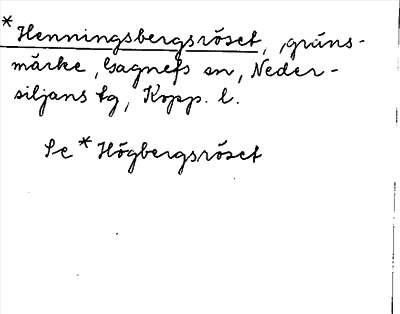 *Henningsbergsröset, gräns-
märke, Gagnefs sn, Neder-
siljans tg, Kopp. l.
Se *Högbergsröset